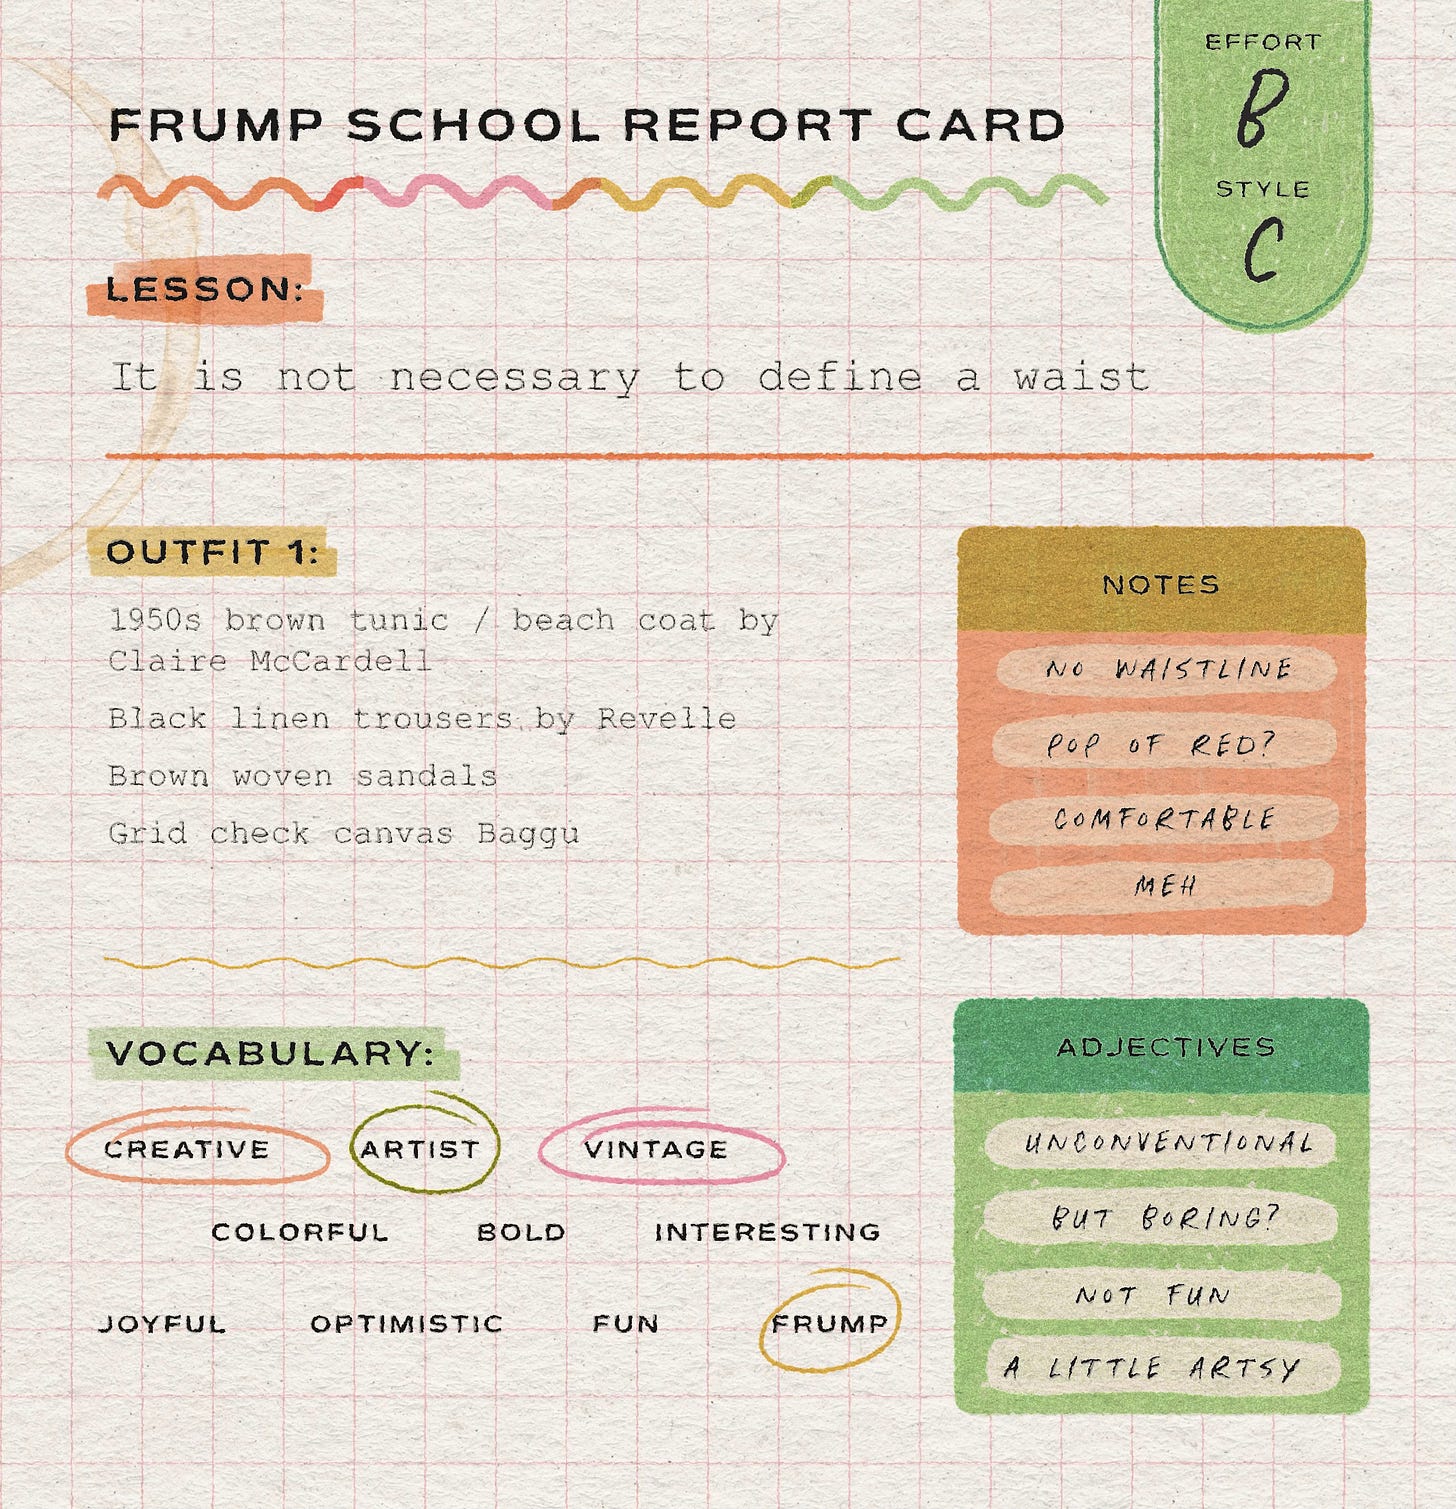 EFFORT
B
STYLE
C
FRUMP SCHOOL REPORT CARD
LESSON:
It is not necessary to define a waist
OUTFIT 1:
1950s brown tunic / beach coat by
Claire McCardell
Black linen trousers by Revelle
Brown woven sandals
Grid check canvas Baggu
NOTES
NO WAISTLINE
POP OF RED?
COMFORTABLE
MEH
VOCABULARY:
CREATIVE ARTIST VINTAGE
COLORFUL BOLD INTERESTING
JOYFUL OPTIMISTIC FUN FRUMP
ADJECTIVES
UNCONVENTIONAL
BUT BORING?
NOT FUN
A LITTLE ARTSY